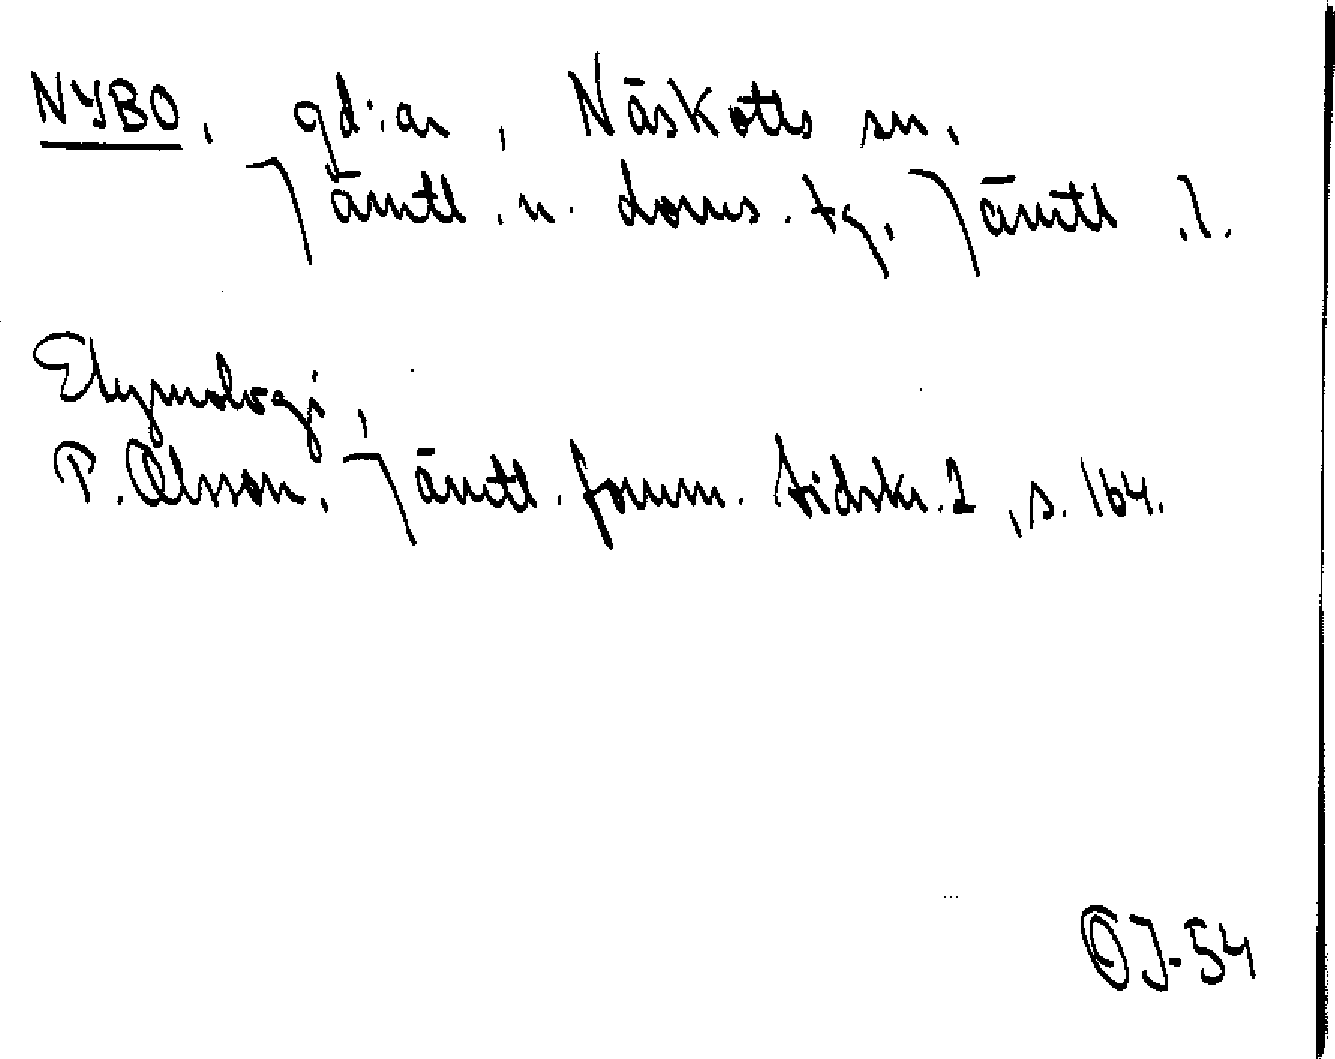 NYBO, gd:ar, Näskotts sn,
Jämtl. n. doms. tg, Jämtl. l.
Etymologi,
P. Olsson, Jämtl. fornm. tidskr. 2, s. 164.
J-54